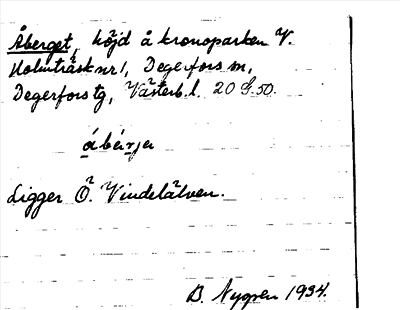 Åberget, höjd å kronoparken V.
Holmträsk nr 1, Degerfors sn,
Degerfors tg, Västerb. l. 20 G. 50.
åbärjɐ
Ligger Ö. Vindelälven.
B. Nygren 1934.